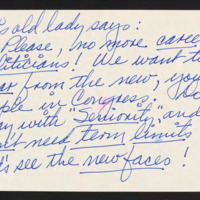 's old lady says:
Please, no more career
liticians! We want to
ar from the new, you
ple in Congress.
ay with "Seniority" and
n't need term limits
t's see the new faces!